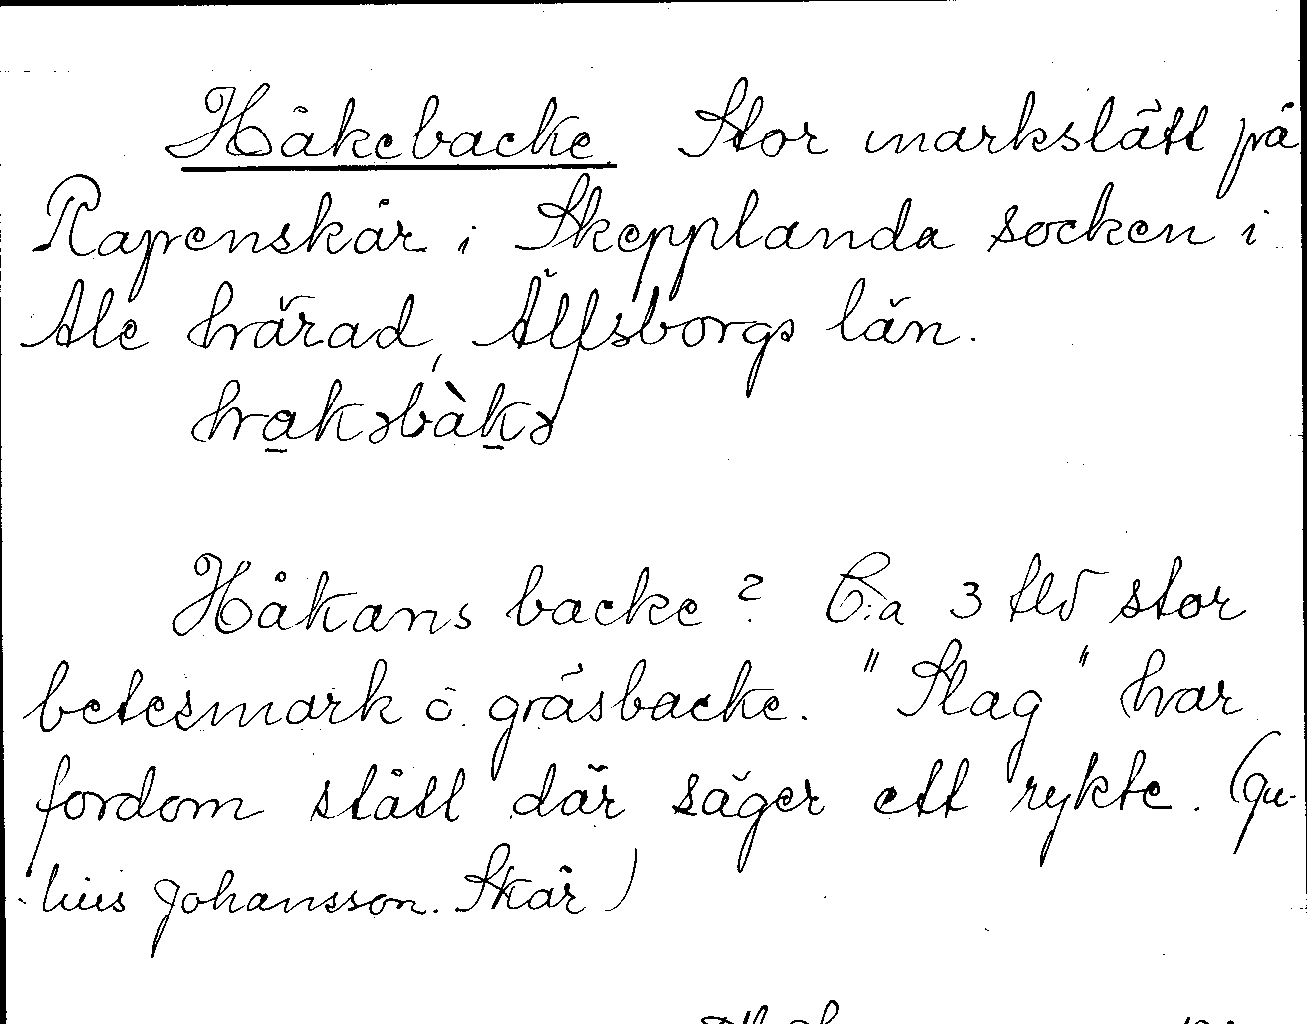 Håkebacke. Stor markslätt på
Rapenskår i Skepplanda socken i
Ale härad, Älfsborgs län.
hakəbàkə
Håkans backe? C:a 3 tld stor
betesmark o. gräsbacke. "Slag" har
fordom stått där säger ett rykte. (Ju-
lius Johansson. Skår)